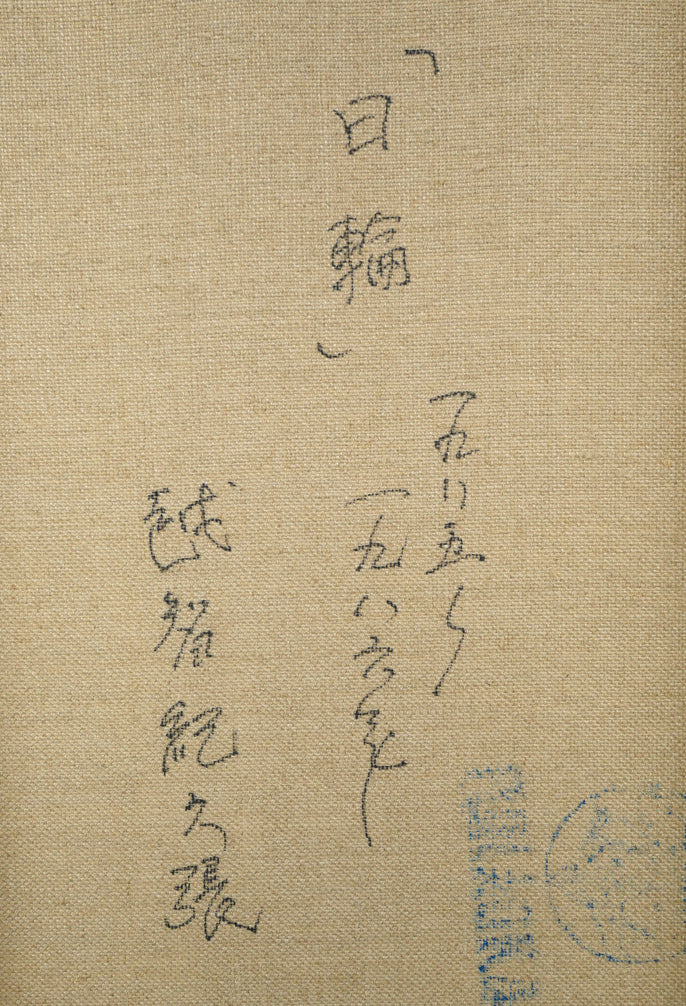 「日輪」
一九八五〜
一九八六年
越智紀久張